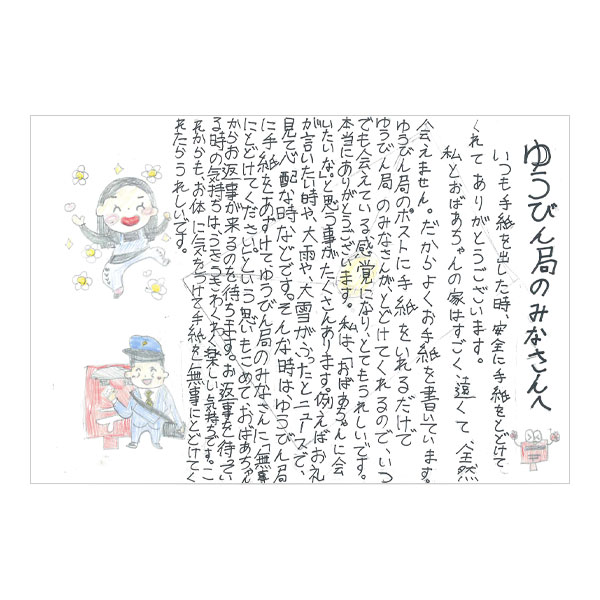 ゆうびん局のみなさんへ
いつも手紙を出した時、安全に手紙をとどけて
くれてありがとうございます。
私とおばあちゃんの家はすごく、遠くて、全然
会えません。だからよくお手紙を書いています。
ゆうびん局のポストに手紙をいれるだけで
ゆうびん局のみなさんが、とどけてくれるので、いつ
でも会えている感覚になり、とてもうれしいです。
本当にありがとうございます。私は、「おばあちゃんに会
いたいな。」と思う事がたくさんあります。例えばお礼
が言いたい時や、大雨や、大雪がふったとニュースで、
見て心配な時などです。そんな時は、ゆうびん局
に手紙をあずけてゆうびん局のみなさんに「無事
にとどけてください。」という思いもこめて、おばあちゃん
からお返事が来るのを待ちます。お返事を待ってい
る時の気持ちは、うきうきわくわく、楽しい気持ちです。こ
れからも、お体に気をつけて手紙を無事にとどけてく
れたらうれしいです。